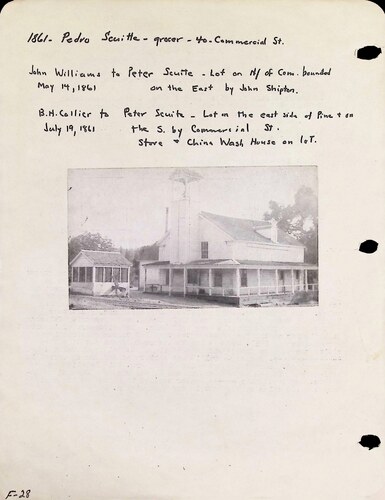 1861- Pedro Scuitte - grocer - 40 - Commercial St.
John Williams to Peter Scuite - Lot on N/ of Com. bounded
May 14, 1861 on the East by John Shipton.
B.H. Collier to Peter Scuite - Lot on the east side of Pine + on
July 19, 1861 the S. by Commercial St.
Store + China Wash House on lot.
F-28